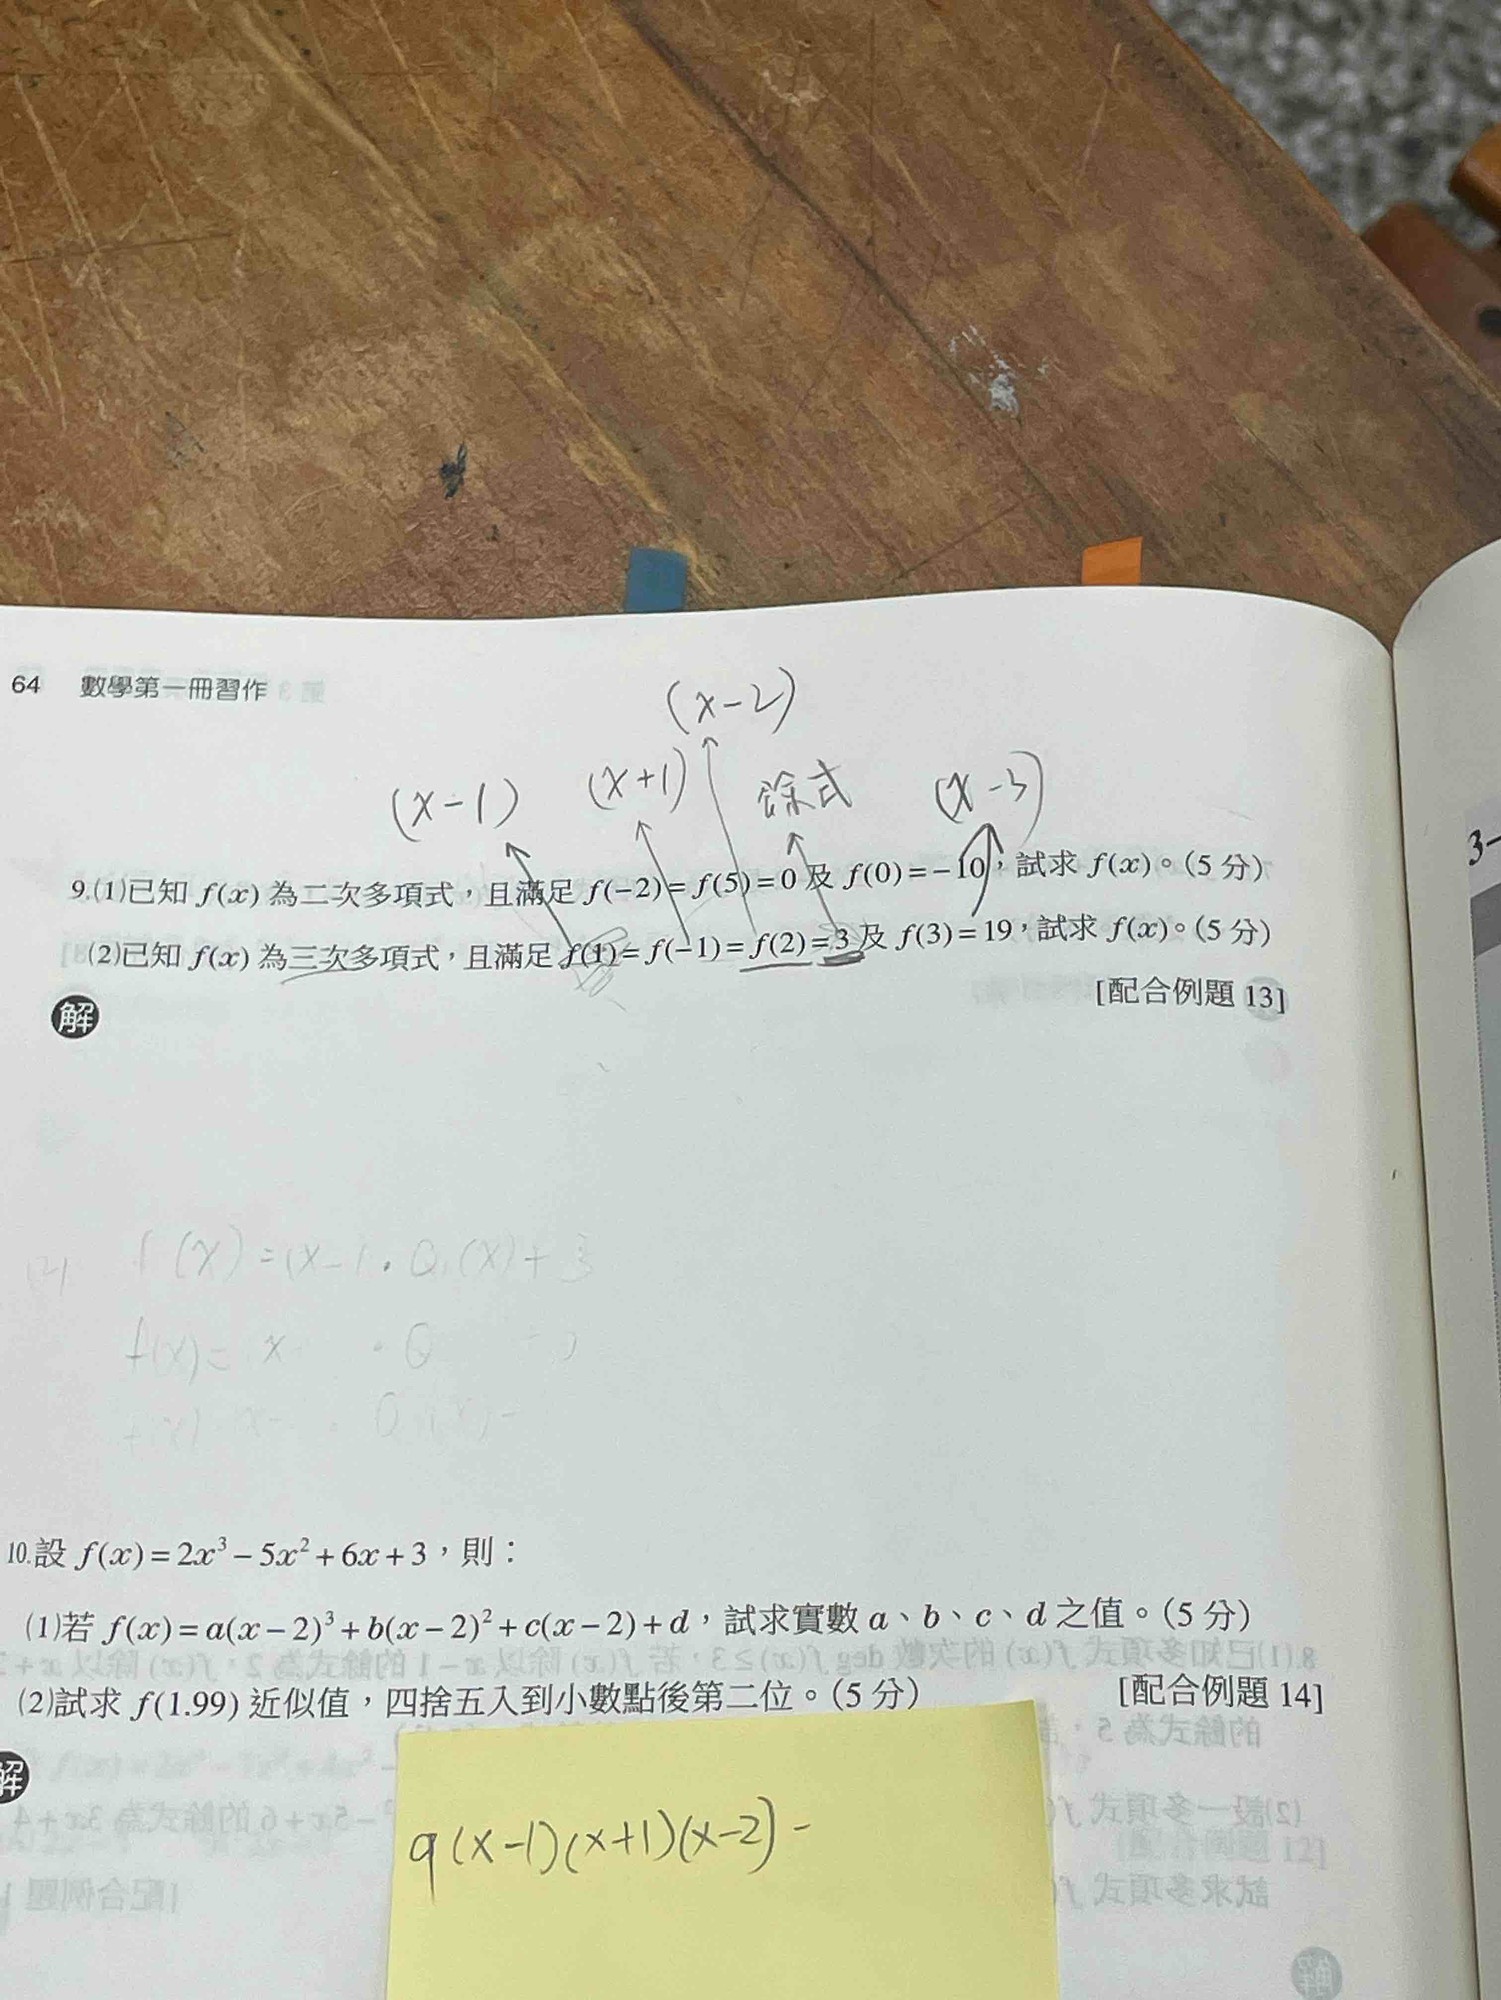 64 數學第一冊習作
(x-2)
(x-1) (x+1) 餘式 (x-3)
9.(1)已知 f(x) 為二次多項式，且滿足 f(-2)=f(5)=0 及 f(0)=-10，試求 f(x)。(5 分)
(2)已知 f(x) 為三次多項式，且滿足 f(1)=f(-1)=f(2)=3 及 f(3)=19，試求 f(x)。(5 分)
[配合例題 13]
解
(2) f(x)=(x-1·Q(x)+3
f(x)= x · Q
10.設 f(x)=2x³-5x²+6x+3，則：
(1)若 f(x)=a(x-2)³+b(x-2)²+c(x-2)+d，試求實數 a、b、c、d 之值。(5 分)
(2)試求 f(1.99) 近似值，四捨五入到小數點後第二位。(5 分)
[配合例題 14]
解
a(x-1)(x+1)(x-2)-
3-